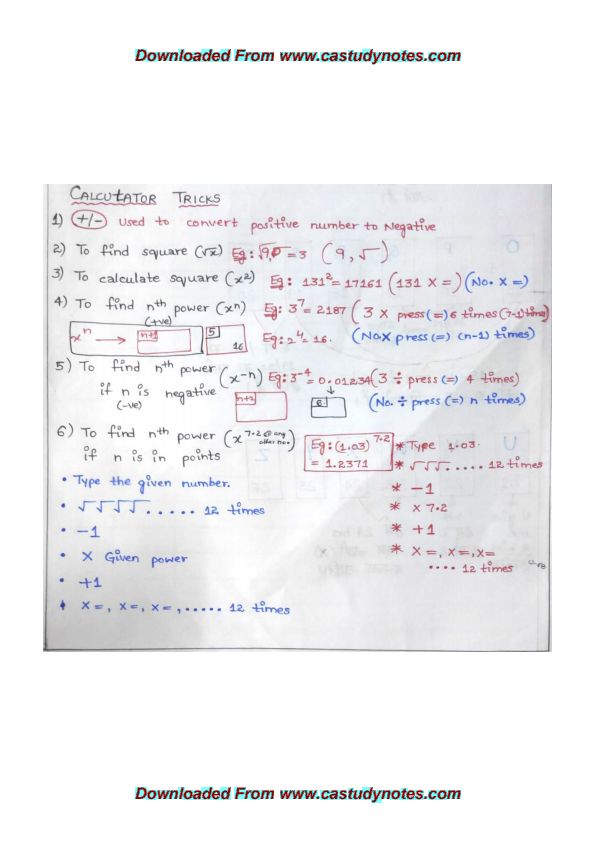 Downloaded From www.castudynotes.com
CALCULATOR TRICKS
1) +/- used to convert positive number to Negative
2) To find square (√x) Eg: √9 = 3 (9, √)
3) To calculate square (x²) Eg: 131² = 17161 (131 X =) (No. X =)
4) To find nth power (xⁿ) Eg: 3⁷ = 2187 (3 X press (=) 6 times (7-1) time)
(+ve)
xⁿ → n+1 5 16 Eg: 2⁴ = 16. (No. X press (=) (n-1) times)
5) To find nth power (x⁻ⁿ) Eg: 3⁻⁴ = 0.01234 (3 ÷ press (=) 4 times)
if n is negative n+1 6 (No. ÷ press (=) n times)
(-ve)
6) To find nth power (x^7.2 any other no.) Eg: (1.03)^7.2 * Type 1.03.
if n is in points = 1.2371 * √√√..... 12 times
• Type the given number. * -1
• √√√√..... 12 times * X 7.2
• -1 * +1
• X Given power * X =, X =, X =
.... 12 times
• +1
• X =, X =, X =, ..... 12 times
Downloaded From www.castudynotes.com